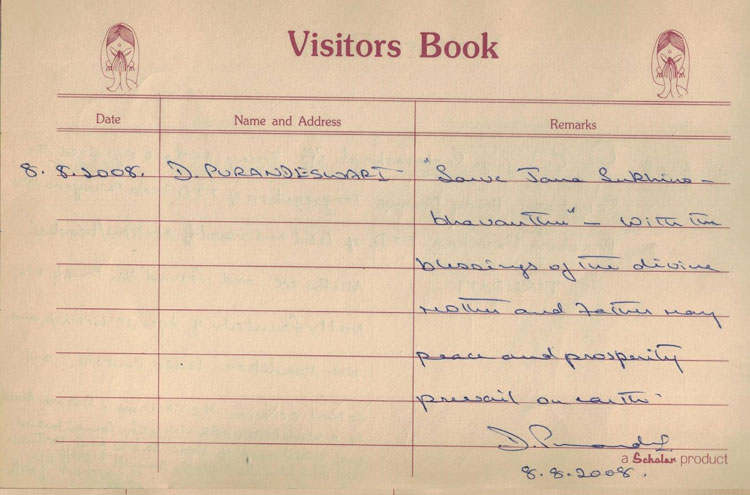 Visitors Book
Date Name and Address Remarks
8.8.2008. D. PURANDESWARI "Sarve Jana Sukhino -
bhavanthu" - With the
blessings of the divine
Mother and Father may
peace and prosperity
prevail on earth.
D. Purandeswari
a Scholar product
8.8.2008.